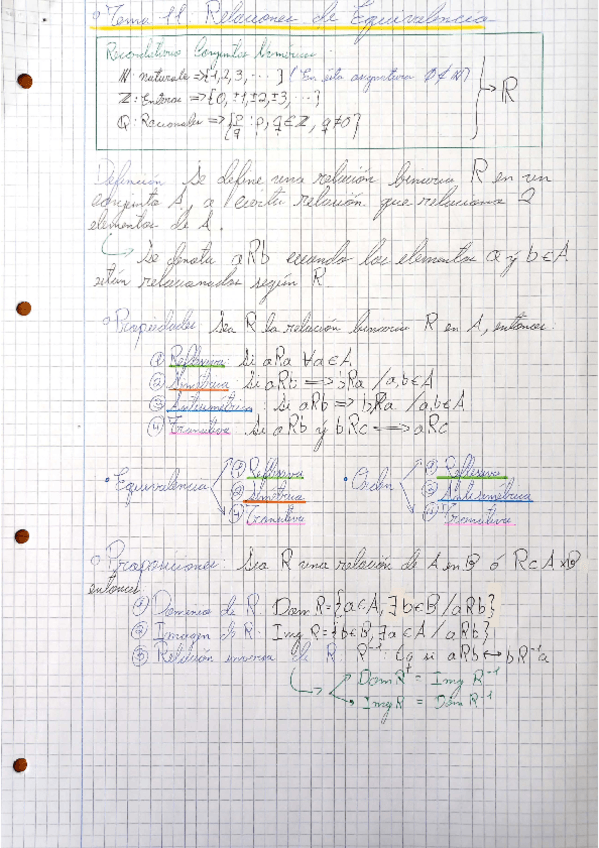 Tema 11 Relaciones de Equivalencia
Recordatorio Conjuntos Numéricos:
N: naturales => {1,2,3,...} (En esta asignatura 0∉N)
Z: Enteros => {0,±1,±2,±3,...} → R
Q: Racionales => {p/q : p,q∈Z, q≠0}
Definición Se define una relación binaria R en un
conjunto A, a cierta relación que relaciona 2
elementos de A.
Se denota aRb cuando los elementos a y b∈A
están relacionados según R.
Propiedades Sea R la relación binaria R en A, entonces:
① Reflexiva: Si aRa ∀a∈A
② Simétrica Si aRb => bRa /a,b∈A
③ Antisimétrica: Si aRb => bRa /a,b∈A
④ Transitiva Si aRb y bRc => aRc
• Equivalencia ① Reflexiva ② Simétrica ④ Transitiva • Orden ① Reflexiva ③ Antisimétrica ④ Transitiva
Proposiciones: Sea R una relación de A en B ó R⊂A×B
entonces
① Dominio de R: Dom R={a∈A,∃b∈B/aRb}
② Imagen de R: Img R={b∈B,∃a∈A/aRb}
③ Relación inversa de R: R⁻¹: si aRb ↔ bR⁻¹a
Dom R = Img R⁻¹
Img R = Dom R⁻¹